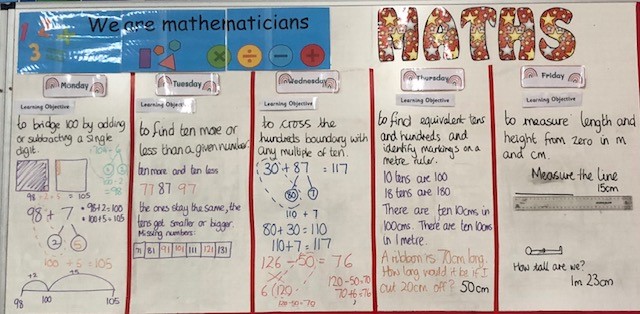 We are mathematicians
MATHS
Monday
Learning Objective
to bridge 100 by adding
or subtracting a single
digit.
98 + 2 + 5 = 105
98 + 7
• 98+2=100
• 100+5=105
2 5
100 + 5 = 105
+2 +5
98 100 105
Tuesday
Learning Objective
to find ten more or
less than a given number
ten more and ten less
77 87 97
the ones stay the same, the
tens get smaller or bigger.
Missing numbers:
71 81 91 101 111 121 131
Wednesday
to cross the
hundreds boundary with
any multiple of ten.
30 + 87 = 117
80 7
110 + 7
80+30 = 110
110+7=117
126 - 50 = 76
6 120
120-50=70
70+6=76
120-50=70
Thursday
Learning Objective
to find equivalent tens
and hundreds and
identify markings on a
metre ruler.
10 tens are 100
18 tens are 180
There are ten 10cms in
100cms. There are ten 10cms
in 1 metre.
A ribbon is 70cm long.
How long would it be if I
cut 20cm off? 50cm
Friday
Learning Objective
to measure length and
height from zero in m
and cm.
Measure the line
15cm
How tall are we?
1m 23cm